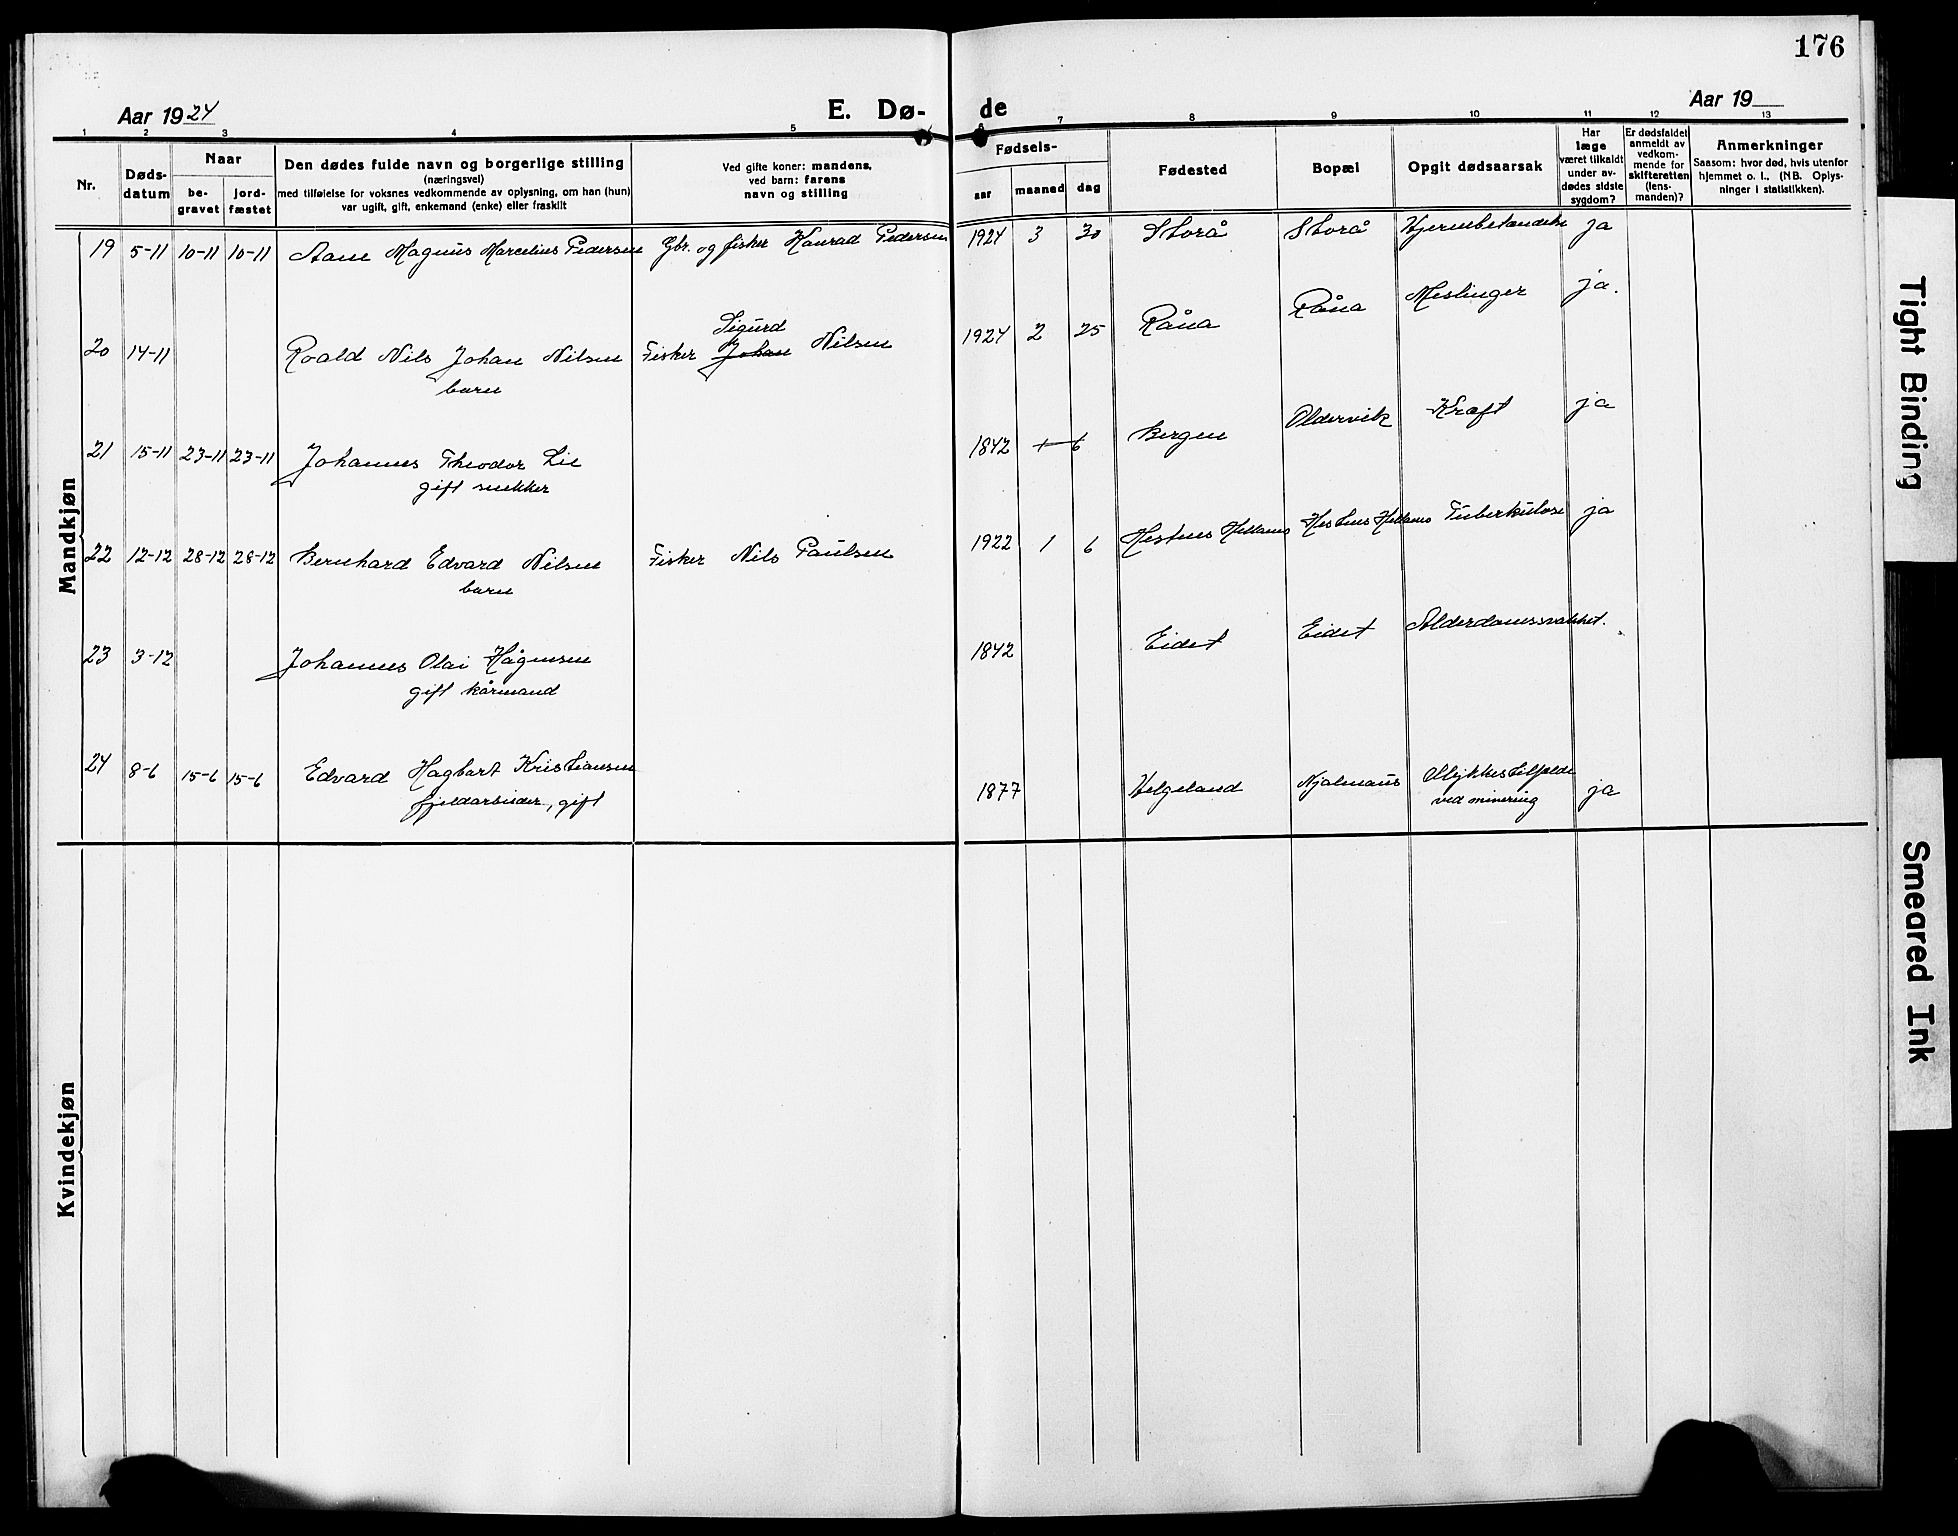 176
Aar 1924
E. Dø-
de
Aar 19
1 2 3 4 5 6 7 8 9 10 11 12 13
Nr.
Døds-
datum
Naar
be-
gravet
jord-
fæstet
Den dødes fulde navn og borgerlige stilling
(næringsvei)
med tilføielse for voksnes vedkommende av oplysning, om han (hun)
var ugift, gift, enkemand (enke) eller fraskilt
Ved gifte koner: mandens,
ved barn: farens
navn og stilling
Fødsels-
aar maaned dag
Fødested
Bopæl
Opgit dødsaarsak
Har
læge
været tilkaldt
under av-
dødes sidste
sygdom?
Er dødsfaldet
anmeldt av
vedkom-
mende for
skifteretten
(lens-
manden)?
Anmerkninger
Saasom: hvor død, hvis utenfor
hjemmet o. l., (NB. Oplys-
ninger i statistikken).
Mandkjøn
19 5-11 10-11 10-11 Magnus Marcelius Pedersen Gbr. og fisker Konrad Pedersen 1924 3 30 Storå Storå Hjernebetændelse ja
Sigurd
20 14-11 Roald Nils Johan Nilsen Fisker Johan Nilsen 1924 2 25 Råna Råna Meslinger ja.
barn
21 15-11 23-11 23-11 Johannes Theodor Lie 1842 6 Bergen Oldervik Kræft ja
gift snekker
22 12-12 28-12 28-12 Bernhard Edvard Nilsen Fisker Nils Paulsen 1922 1 6 Hestnes Hestnes Tuberkulose ja
barn
23 3-12 Johannes Olai Hågensen 1842 Eidet Eidet Alderdomssvakhet.
gift kårmand
24 8-6 15-6 15-6 Edvard Hagbart Kristiansen 1877 Helgeland Ulykkestilfelde ja
fjeldarbeider, gift
ved minering
Kvindekjøn
Tight Binding
Smeared Ink